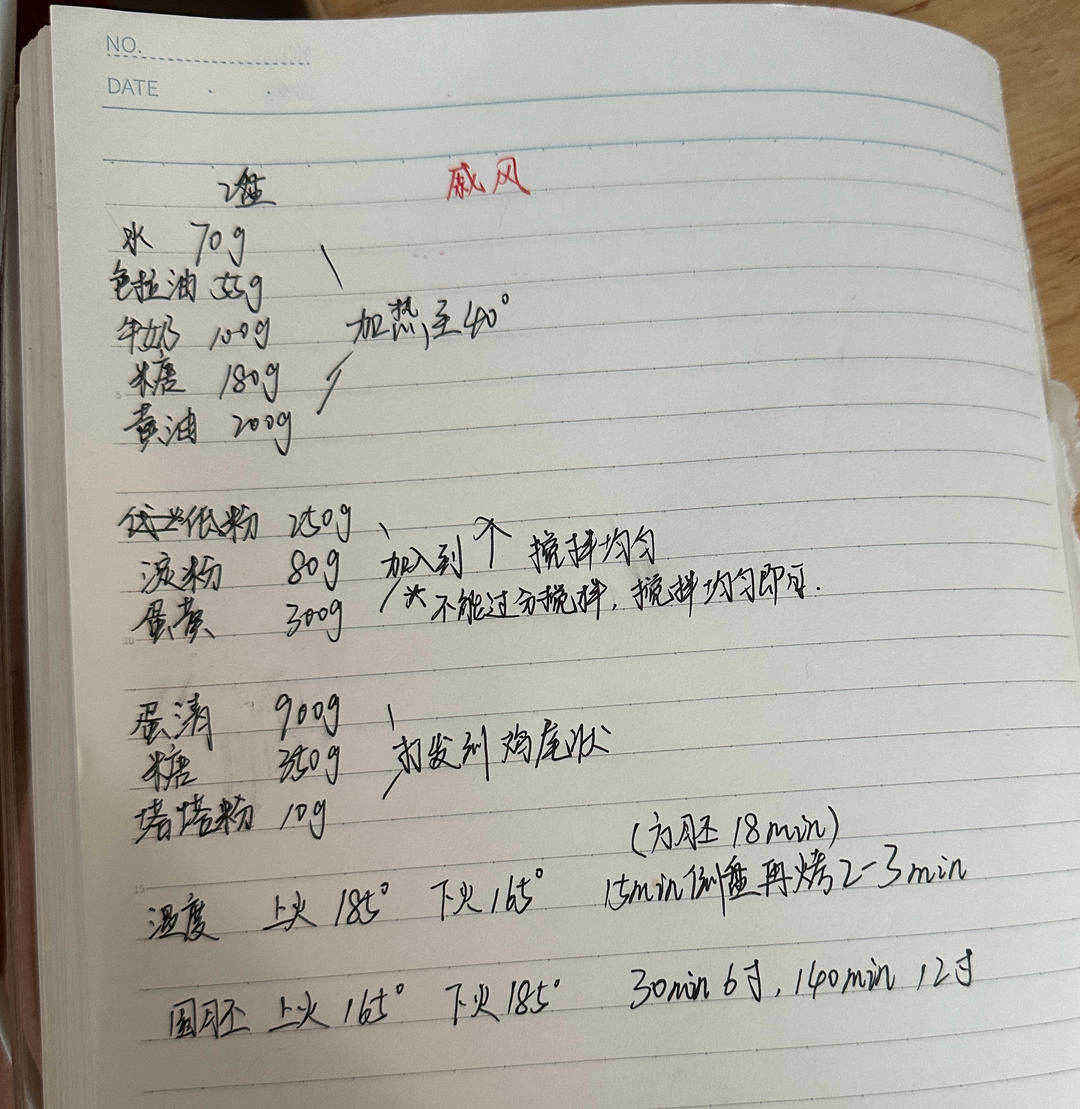 NO.
DATE
2盘 戚风
水 70g
色拉油 55g
牛奶 100g 加热至40°
糖 180g
黄油 200g
5
低粉 250g
淀粉 80g 加入到↑搅拌均匀
蛋黄 300g *不能过分搅拌,搅拌均匀即可.
10
蛋清 900g
糖 350g 打发到鸡尾状
塔塔粉 10g
(方胚 18min)
15
温度 上火185° 下火165° 15min倒盘再烤2-3min
圆胚 上火165° 下火185° 30min 6寸,140min 12寸